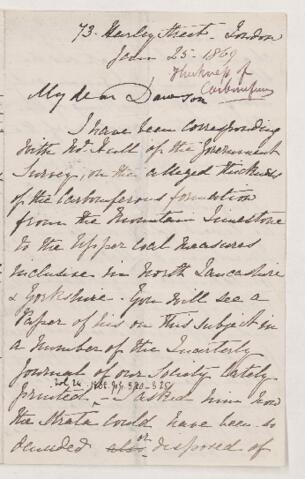 73. Harley Street. London
Jan 25 - 1869
Thickness of
Carboniferous
My dear Dawson
I have been corresponding
with Mr. Hull of the Government
Survey, on the alleged thickness
of the Carboniferous formation
from the Mountain Limestone
to the Upper Coal Measures
inclusive in North Lancashire
& Yorkshire. You will see a
Paper of his on this subject in
a number of the Quarterly
Journal of our Society lately
printed, - I asked him how
Vol. 24. 1868.
the strata could have been so
denuded or disposed of